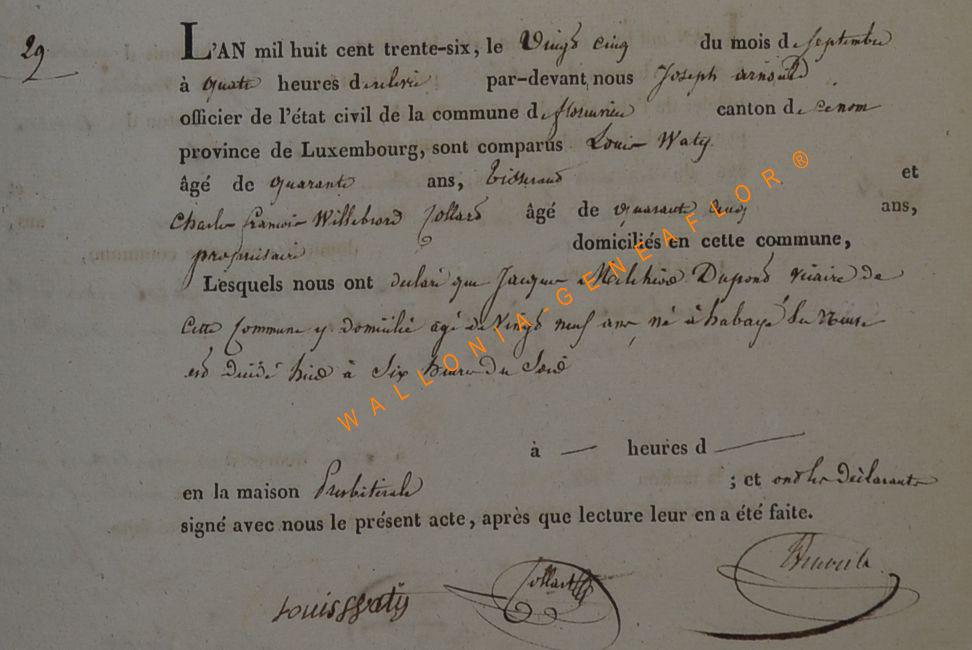 29
L'AN mil huit cent trente-six, le Vingt cinq du mois de septembre
à quatre heures de relevée par-devant nous Joseph arnould
officier de l'état civil de la commune de canton de
province de Luxembourg, sont comparus Louis Waty
âgé de quarante ans, tisserand et
Charles François Willebrord Collard âgé de quarante cinq ans,
propriétaire domiciliés en cette commune,
Lesquels nous ont déclaré que Jacques Melchior Dupont vicaire de
cette Commune y domicilié agé de Vingt neuf ans né à habay
est décédé hier à Six heures du Soir
à — heures d —
en la maison Presbiterale ; et ont les déclarants
signé avec nous le présent acte, après que lecture leur en a été faite.
Louis Waty Collard
WALLONIA-GENEAFLOR®